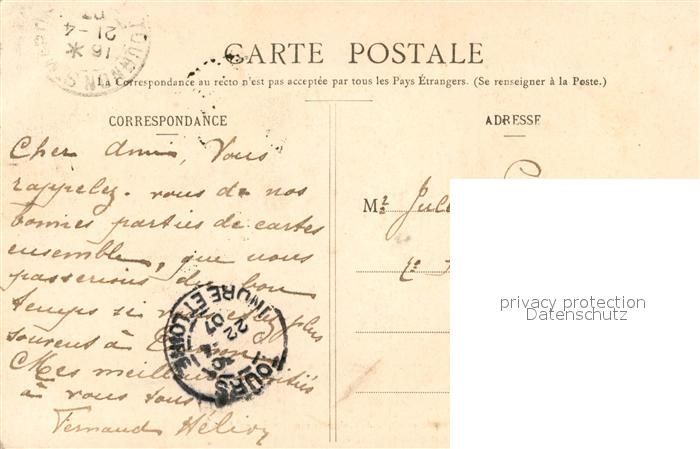 CARTE POSTALE
La Correspondance au recto n'est pas acceptée par tous les Pays Étrangers. (Se renseigner à la Poste.)
CORRESPONDANCE
Cher Ami, Vous
rappelez-vous de nos
bonnes parties de cartes
ensemble, que nous
passerions du bon
temps si vous plus
souvent à
Mes meilleures amitiés
à vous tous
Fernand
ADRESSE
Mr Jule
privacy protection
Datenschutz
TOURNON
16
21-4
TOURS
INDRE ET LOIRE
22
07